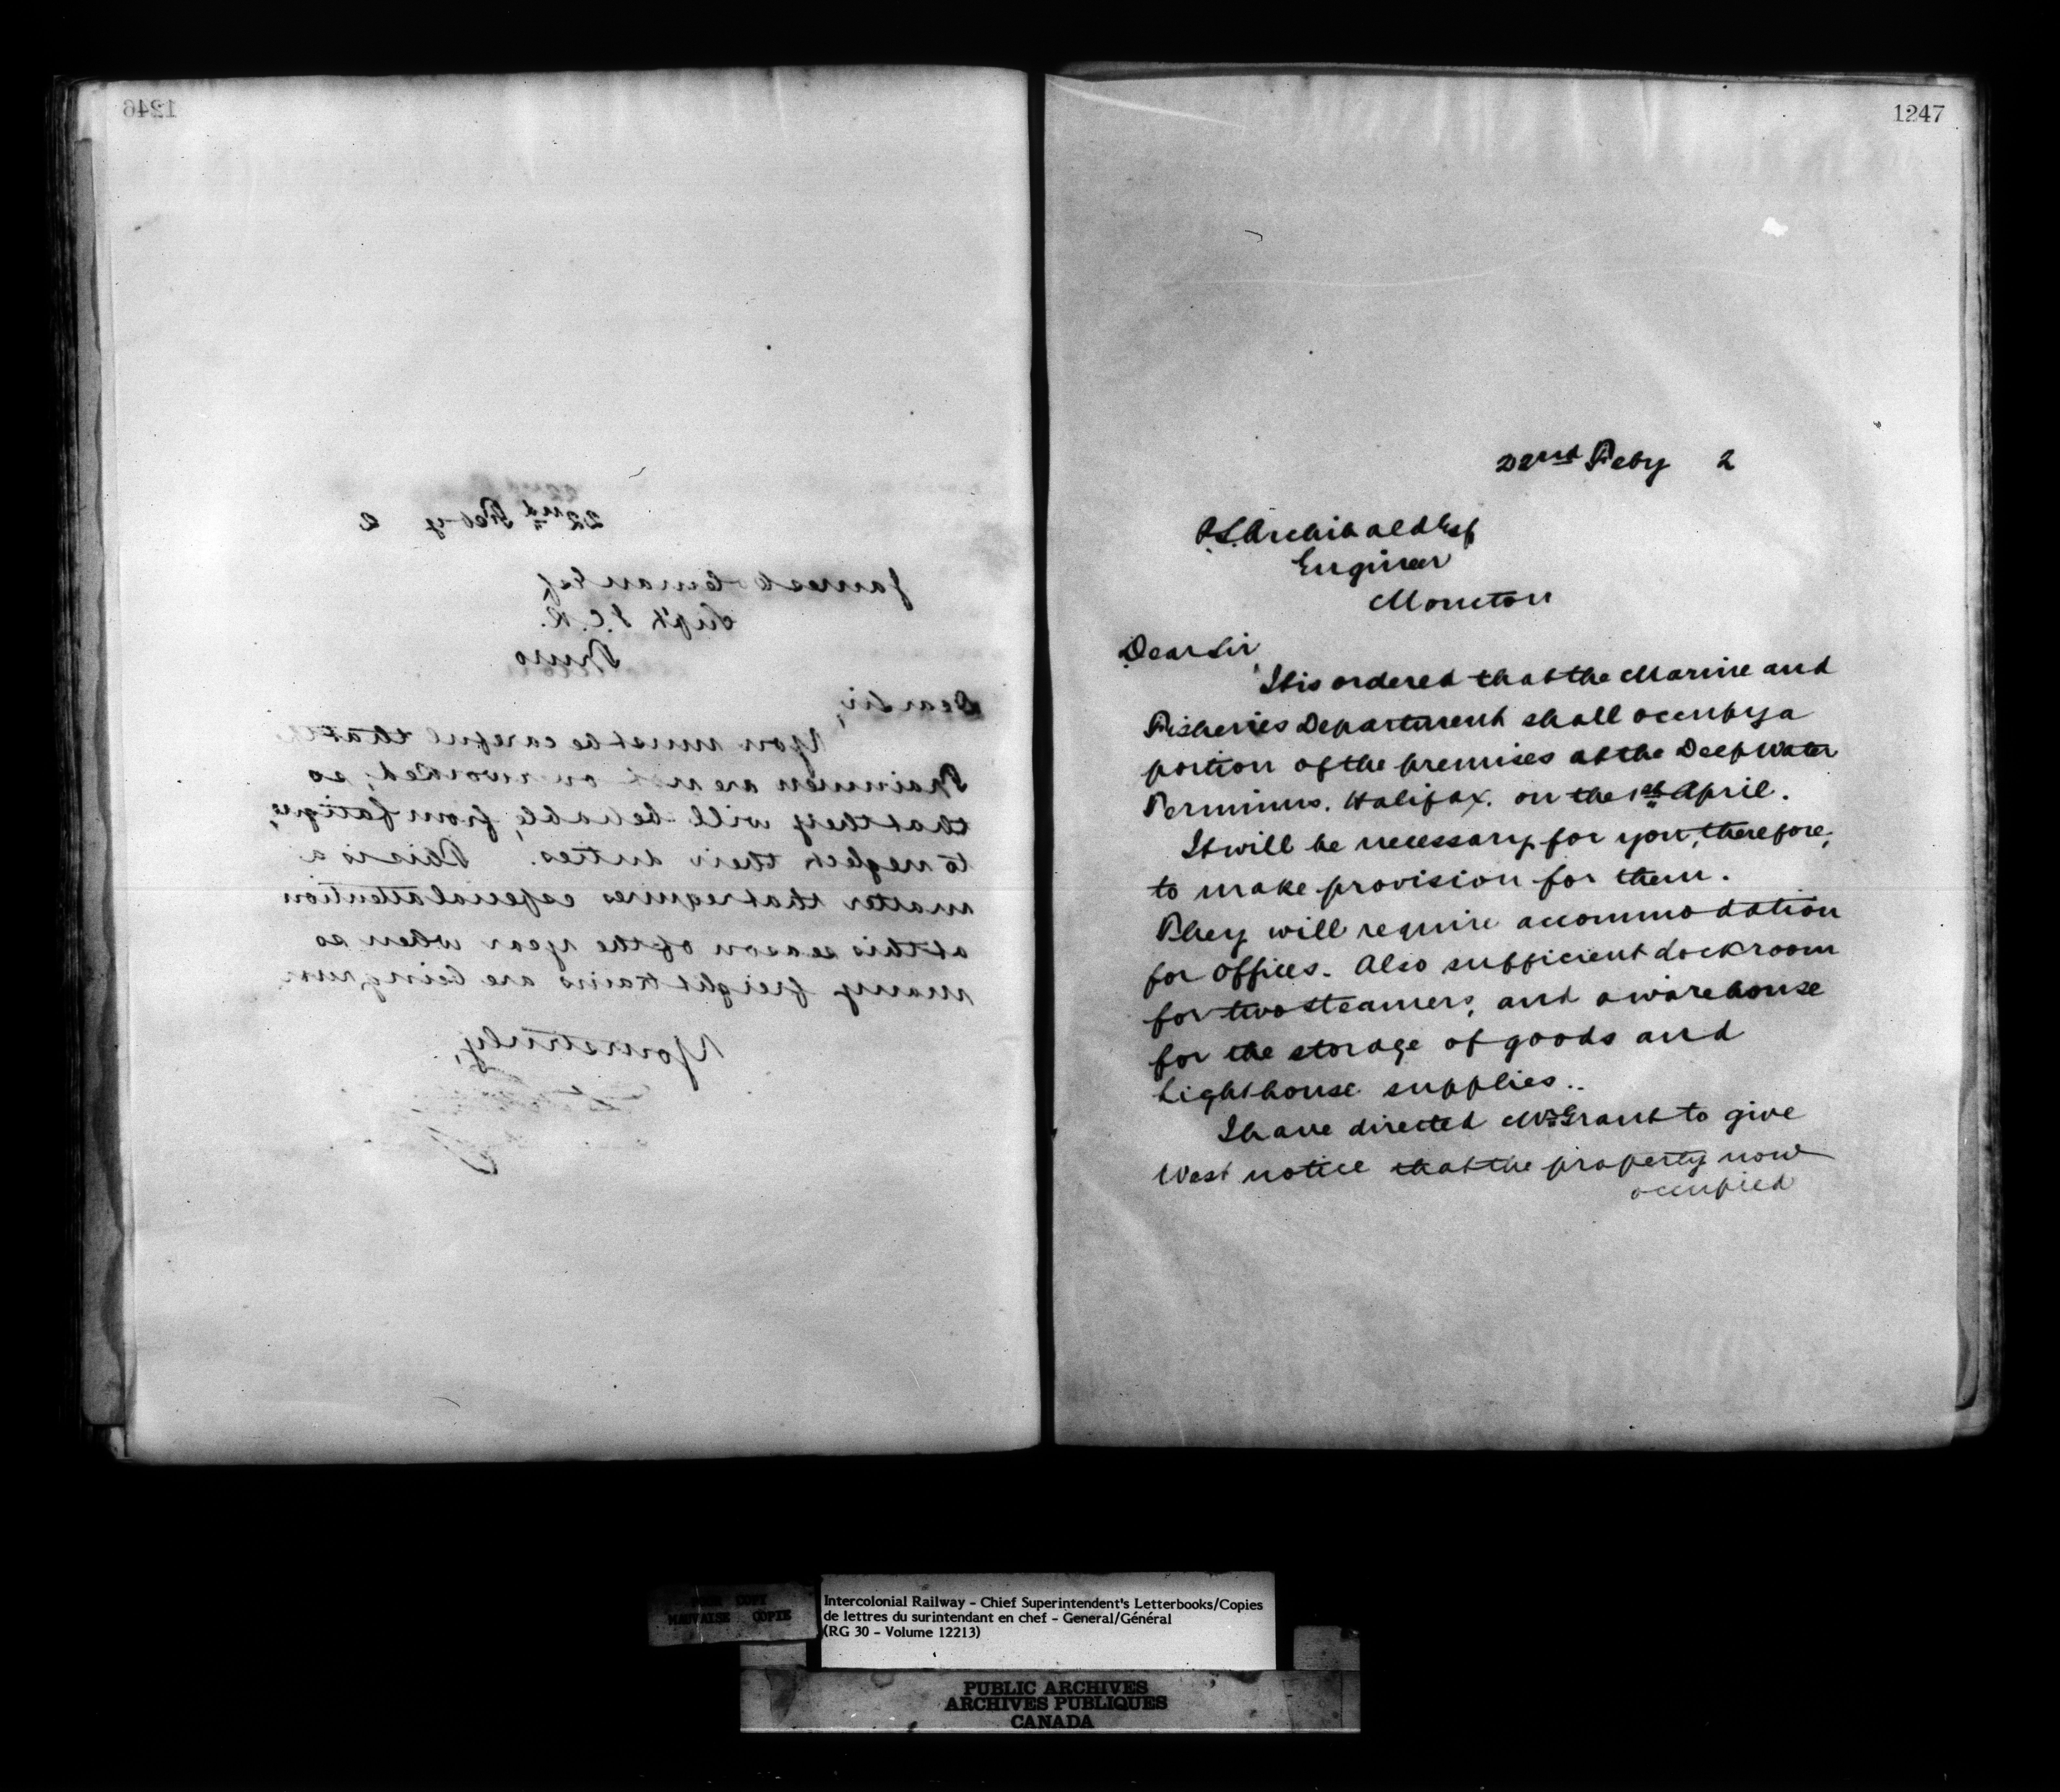 1246
22nd Feby 2
James Coleman Esq
Supt I.C.R.
Truro
Dear Sir,
You must be careful that the
Trainmen are not overworked, so
that they will be liable, from fatigue,
to neglect their duties. This is a
matter that requires especial attention
at this season of the year when so
many freight trains are being run
Yours truly,
1247
22nd Feby 2
P.S. Archibald Esq
Engineer
Moncton
Dear Sir,
It is ordered that the Marine and
Fisheries Department shall occupy a
portion of the premises at the Deep Water
Terminus. Halifax. on the 1st April.
It will be necessary for you, therefore,
to make provision for them.
They will require accommodation
for offices. Also sufficient dock room
for two steamers, and a warehouse
for the storage of goods and
Lighthouse supplies..
I have directed Mr Grant to give
West notice that the property now
occupied
POOR COPY
MAUVAISE COPIE
Intercolonial Railway - Chief Superintendent's Letterbooks/Copies
de lettres du surintendant en chef - General/Général
(RG 30 - Volume 12213)
PUBLIC ARCHIVES
ARCHIVES PUBLIQUES
CANADA